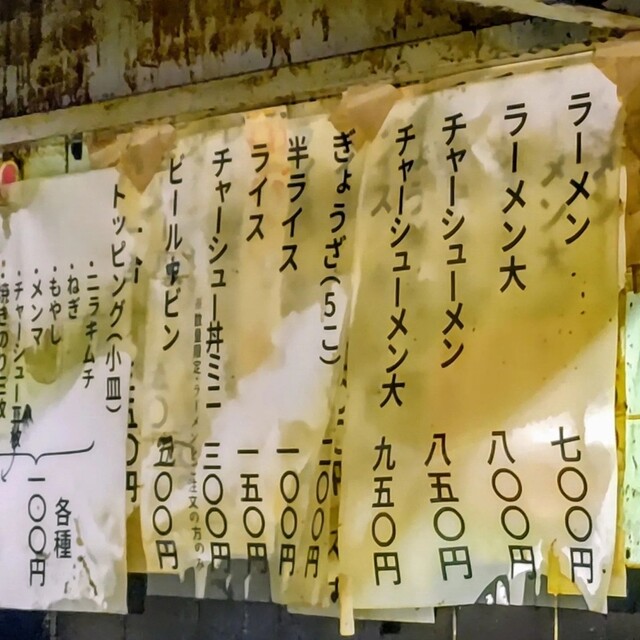 ラーメン 七〇〇円
ラーメン大 八〇〇円
チャーシューメン 八五〇円
チャーシューメン大 九五〇円
ぎょうざ(5こ) 二〇〇円
半ライス 一〇〇円
ライス 一五〇円
チャーシュー丼ミニ 三〇〇円
ビール中ビン 五〇〇円
トッピング(小皿)
・ニラキムチ
・ねぎ
・もやし
・メンマ
・チャーシュー
各種
一〇〇円